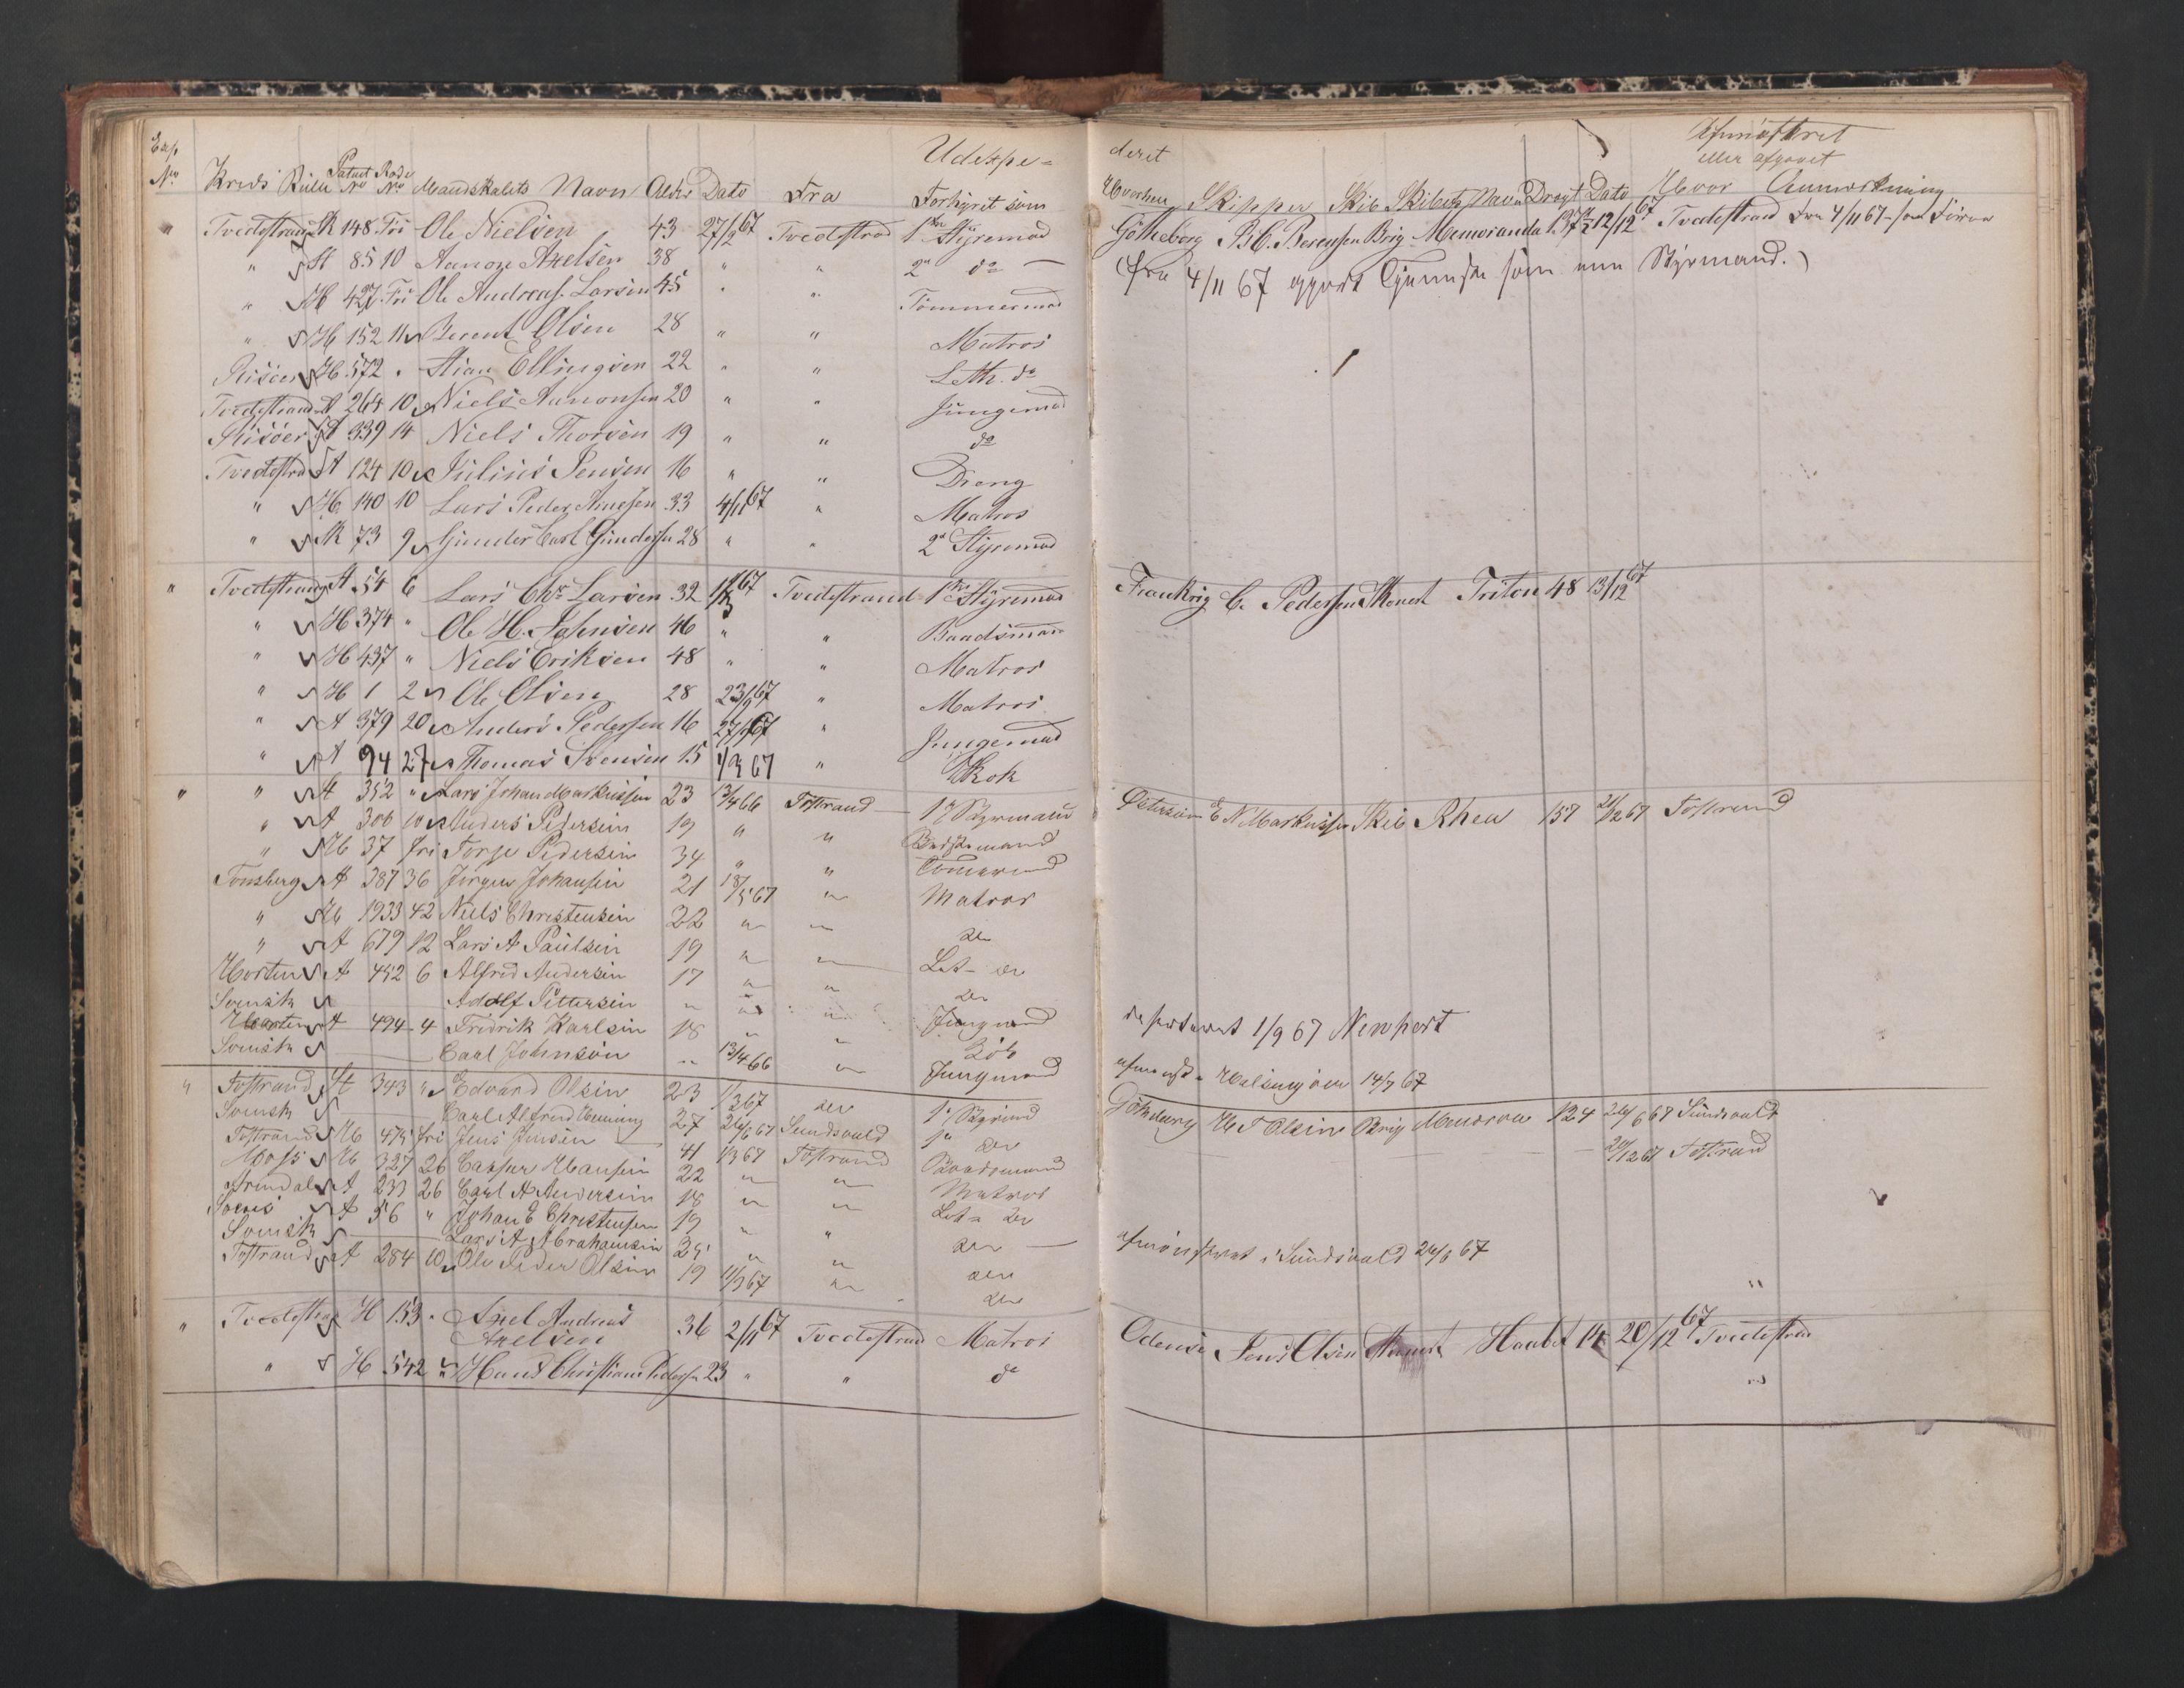 Exp Udexpe= deret Afmönstret
eller afgaaet
No. Kreds Rulle Patent No Rode No Mandskabets Navn Alder Dato Fra Forhyret som Hvorhen Skipper Skib Skibets Navn Drægt Dato Hvor Anmerkning
" Tvedestrand 148 Fri Ole Nielsen 43 27/2 67 Tvedestrand 1ste Styremand Götheborg B. C. Berensen Brig Memoranda 137½ 12/12 67 Tvedestrand fra 4/11 67
" A 85 10 Aanon Axelsen 38 " " 2n do (fra 4/11 67 gjort Tjeneste som Styrmand.)
" H 427 Fri Ole Andreas Larsen 45 " " Tømmermand
" H 152 11 Berent Olsen 28 " " Matros
Risöer H 572 " Stian Ellingsen 22 " " Leth. do
Tvedestrand A 264 10 Niels Aanonsen 20 " " Jungemad
Risöer A 339 14 Niels Thorsen 19 " " do
Tvedestrd A 124 10 Julius Jensen 16 " " Dreng
" H 140 10 Lars Peder 33 4/11 67 " Matros
" 73 9 Gunder Carl Gundersen 28 " " 2n Styremad
" Tvedestrand A 54 6 Lars Chr. Larsen 32 67 Tvedestrand 1ste Styremad Frankrig C. Pedersen Skonert Triton 48 13/12 67
" H 374 " Ole H. Johnsen 46 " " Baadsmand
" H 437 " Niels Eriksen 48 " " Matros
" H 1 2 Ole Olsen 28 23/9 67 " Matros
" A 379 20 Anders Pedersen 16 67 " Jungemad
" A 94 27 Thomas Svensen 15 1/3 67 " Kok
" " A 352 " Lars Johan Markussen 23 13/4 66 Tvstrand 1r Styrmand E N Markussen Skib Rhea 157 67 Tvstrand
" A 306 10 Anders Pedersen 19 " " Baadsmand
" 37 fri Torje Pedersen 34 " " Tömermd
Tønsberg A 387 36 Jörgen Johansen 21 18/5 67 " Matros
" 1933 42 Niels Christensen 22 " " do
" A 679 12 Lars A Paulsen 19 " " Let- do
Horten A 452 6 Alfred Andersen 17 " " do
Svensk Adolf Pettersen " " " Jungmand desertered 1/9 67 Newport
Horten A 494 4 Fredrik Karlsen 18 " "
Svensk Carl Johnson " 13/4 66 " Jungmand afmönst. Helsingöer 14/7 67
" Tvstrand A 343 " Edvard Olsen 23 1/3 67 do 1. Styrmd Götheborg H T Olsen Brig 124 24/6 67 Sundsvald
Svensk Carl Alfred 27 24/6 67 Sundsvald 1n do 20/12 67 Tvstrand
Tvstrand 475 fri Jens Jensen 41 1/3 67 Tvstrand Baadsmand
Moss 327 26 Casper Hansen 22 " " Matros
Arendal A 231 26 Carl A Andersen 18 " " Let- do
A 56 " Johan E Christensen 19 " " do
Svensk Lars A Abrahamsen 25 " " do afmönstret i Sundsvald 24/6 67
Tvstrand A 284 10 Ole Peder Olsen 19 11/3 67 " do "
" Tvedestrand H 153 " Axel Andreas Axelsen 36 2/11 67 Tvedestrand Matros Odense Jens Olsen Skonert Haabet 14 20/12 67 Tvedestrad
" H 542 " Hans Christian Pedersen 23 " " do "